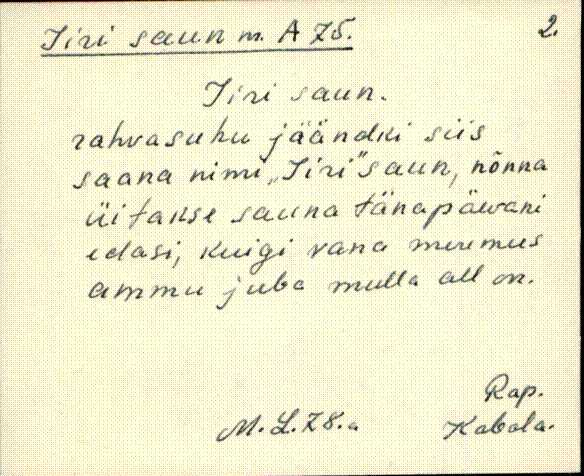 Jiri saun m. A 75. 2.
Jiri saun.
rahvasuhu jäändki siis
saana nimi „Jiri" saun, nõnna
üitakse sauna tänapäevani
edasi, kuigi vana meremus
ammu juba mulla all on.
Rap.
M. L. 78.a Kabala.